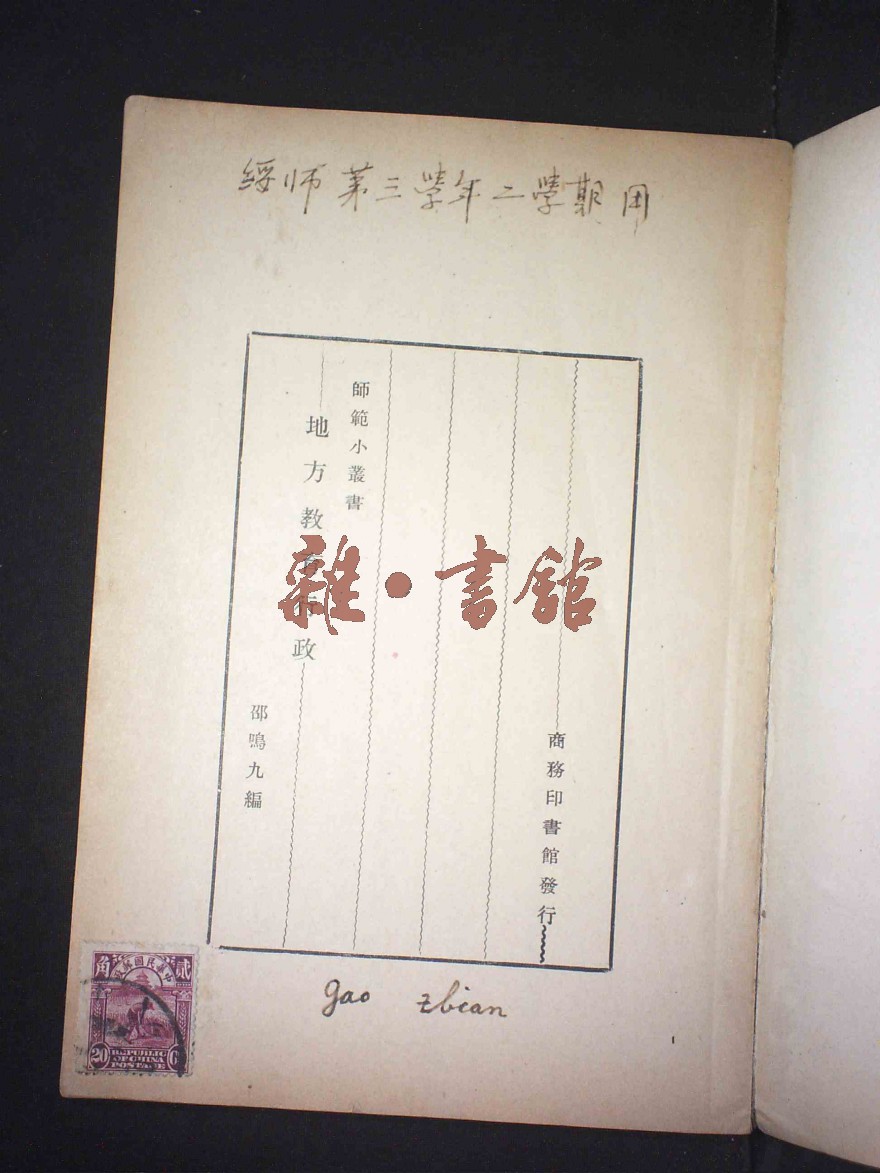 綏师第三學年二學期用
師範小叢書
地方教育行政
邵鳴九編
商務印書館發行
雜•書館
gao zbian
中華民國郵政
貳角
20
REPUBLIC
OF CHINA
POSTAGE
1